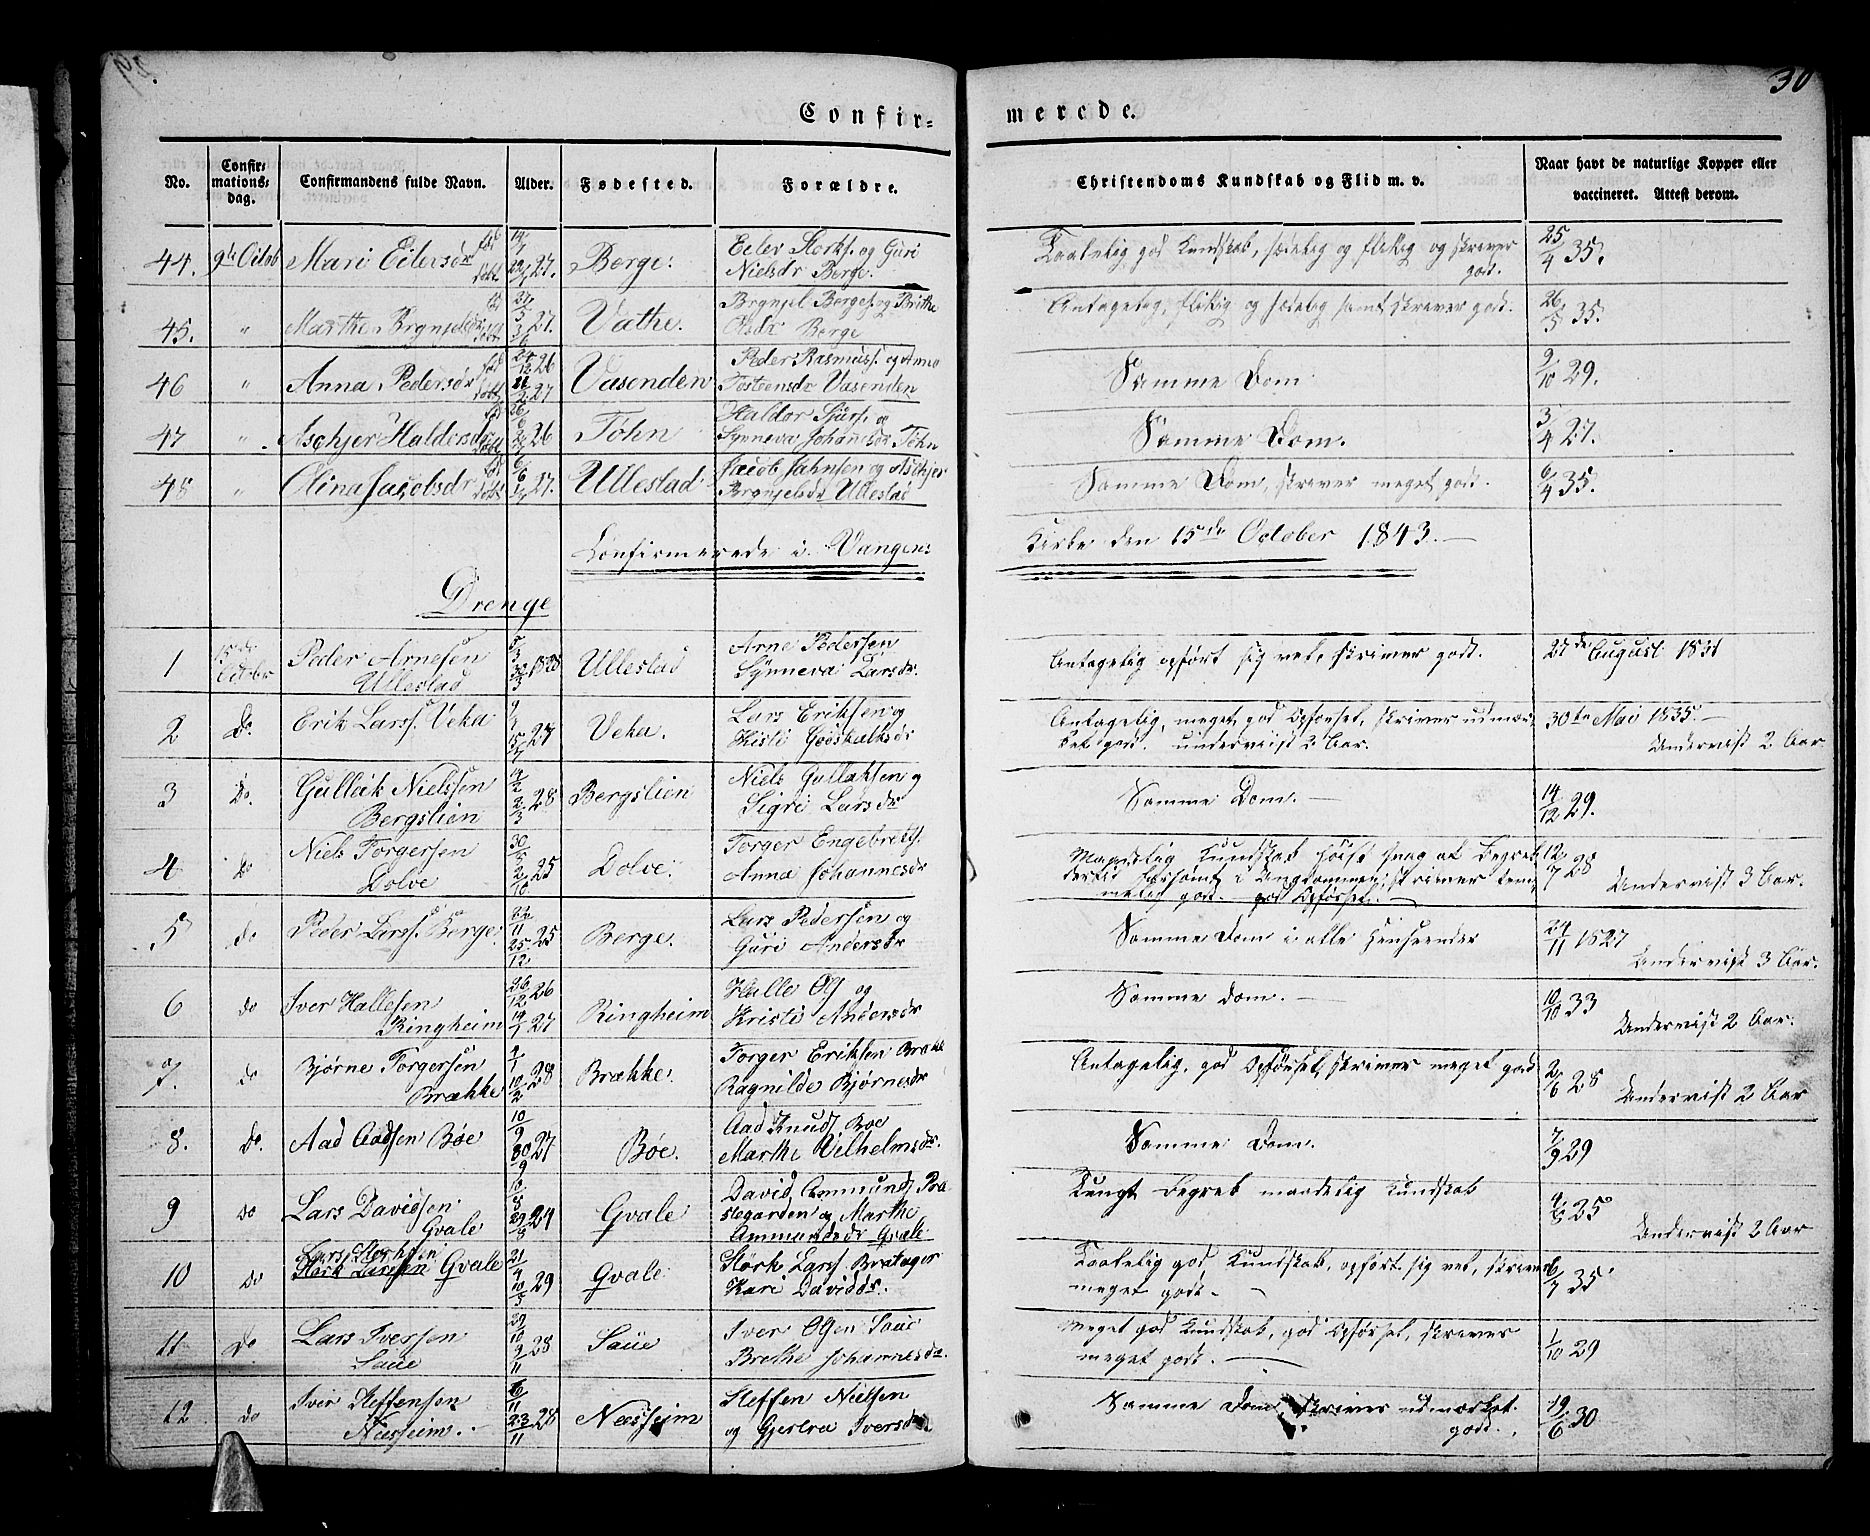 30
Confir- merede.
No.
Confir-
mations-
dag.
Confirmandens fulde Navn.
Alder.
Fødested.
Forældre.
Christendoms Kundskab og Flid m. v.
Naar havt de naturlige Kopper eller
vaccineret. Attest derom.
44. 9de Octob Mari Eilersdr 27. Berge. Eiler Størks. og Guri
Nielsdr Berge.
Taalelig god Kundskab, sædelig og flittig og skriver
godt.
25/4 35.
45. " Marthe Brynjelsdr 27. Væthe. Brynjel Berge og Brithe
Berge
Antagelig, flittig og sædelig samt skriver godt.
26/5 35.
46 " Anna Pedersdr 24/12 26 27 Vasenden Peder Rasmuss. og Anna
Tosteensdr Vasenden
Samme Dom
9/10 29.
47 " Aschjer Haldersdr 26 Tøhn Haldor Sjurs. og
Synneva Johansdr Tøhn
Samme Dom.
3/4 27.
48 " Olina Jacobsdr 27. Ullestad Jacob Jahnsen og Aschjer
Brynjelsdr Ullestad
Samme Dom, skriver meget godt.
6/4 35.
Confirmerede i Vangens Kirke den 15de October 1843.
Drenge
1 15de Octobr Peder Arnesen
Ullestad
1828 Ullestad Arne Pedersen
Synneva Larsdr.
Antagelig opført sig vel, skriver godt.
27de August 1831
2 Do. Erik Larss. Veka 27 Veka. Lars Eriksen og
Kisti Godskalksdr
Antagelig, meget god Opførsel, skriver udmær-
ket godt. underviist 2 Aar.
30te Mai 1835.
Underviist 2 Aar.
3 Do. Gullak Nielssen
Bergslien
28 Bergslien Niels Gullaksen og
Sigri Larsdr
Samme Dom.
14/12 29.
4 Do Niels Torgersen
Dolve
30/5 2/10 25 Dolve. Torger Engebrets.
Anna Johannesdr
Kundskab
god Opførsel.
12/7 28
Underviist 3 Aar.
5 do Peder Larss. Berge. 22/11 25/12 25 Berge. Lars Pedersen og
Guri Andersdr
Samme Dom i alle Henseender
24/11 1827
Underviist 3 Aar.
6 do Iver Hallesen
Ringheim
26/12 26 19/1 27 Ringheim Halle O og
Kristi Andersdr
Samme Dom.
10/10 33
Underviist 2 Aar.
7. do Bjørne Torgersen
Brække
10/2 28 Brække. Torger Eriksen Brække
Ragnilde Bjørnesdr
Antagelig, god Opførsel, skriver meget godt
2/6 28
Underviist 2 Aar
8. Do. Aad Aadsen Bøe 10/9 30/9 27 Bøe. Aad Knuds. Bøe
Marthe Vilhelmsdr.
Samme Dom.
7/9 29
9 Do Lars Davidsen
Gvale
24 Gvale David Ammunds. Bra
tegarden og Marthe
Ammundsdr Gvale.
Tungt Begreb maadelig Kundskab
25
Underviist 2 Aar
10 Do Lars Størksen
Størk Larssen Gvale
21/4 10/5 29 Gvale. Størk Larss. Brateger
Kari Davidsdr.
Taalelig god Kundskab, opført sig vel, skriver
meget godt.
6/7 35
11 Do Lars Iversen
Saue
29/10 9/11 28 Saue Iver Olsen Saue
Brethe Johannesdr.
Meget god Kundskab, god Opførsel, skriver
meget godt.
1/10 29
12 do Iver Steffensen
Næsheim.
23/11 28 Næsheim Steffen Nielsen
og Gjertru Iversdr
Samme Dom, skriver udmærket
godt.
19/6 30